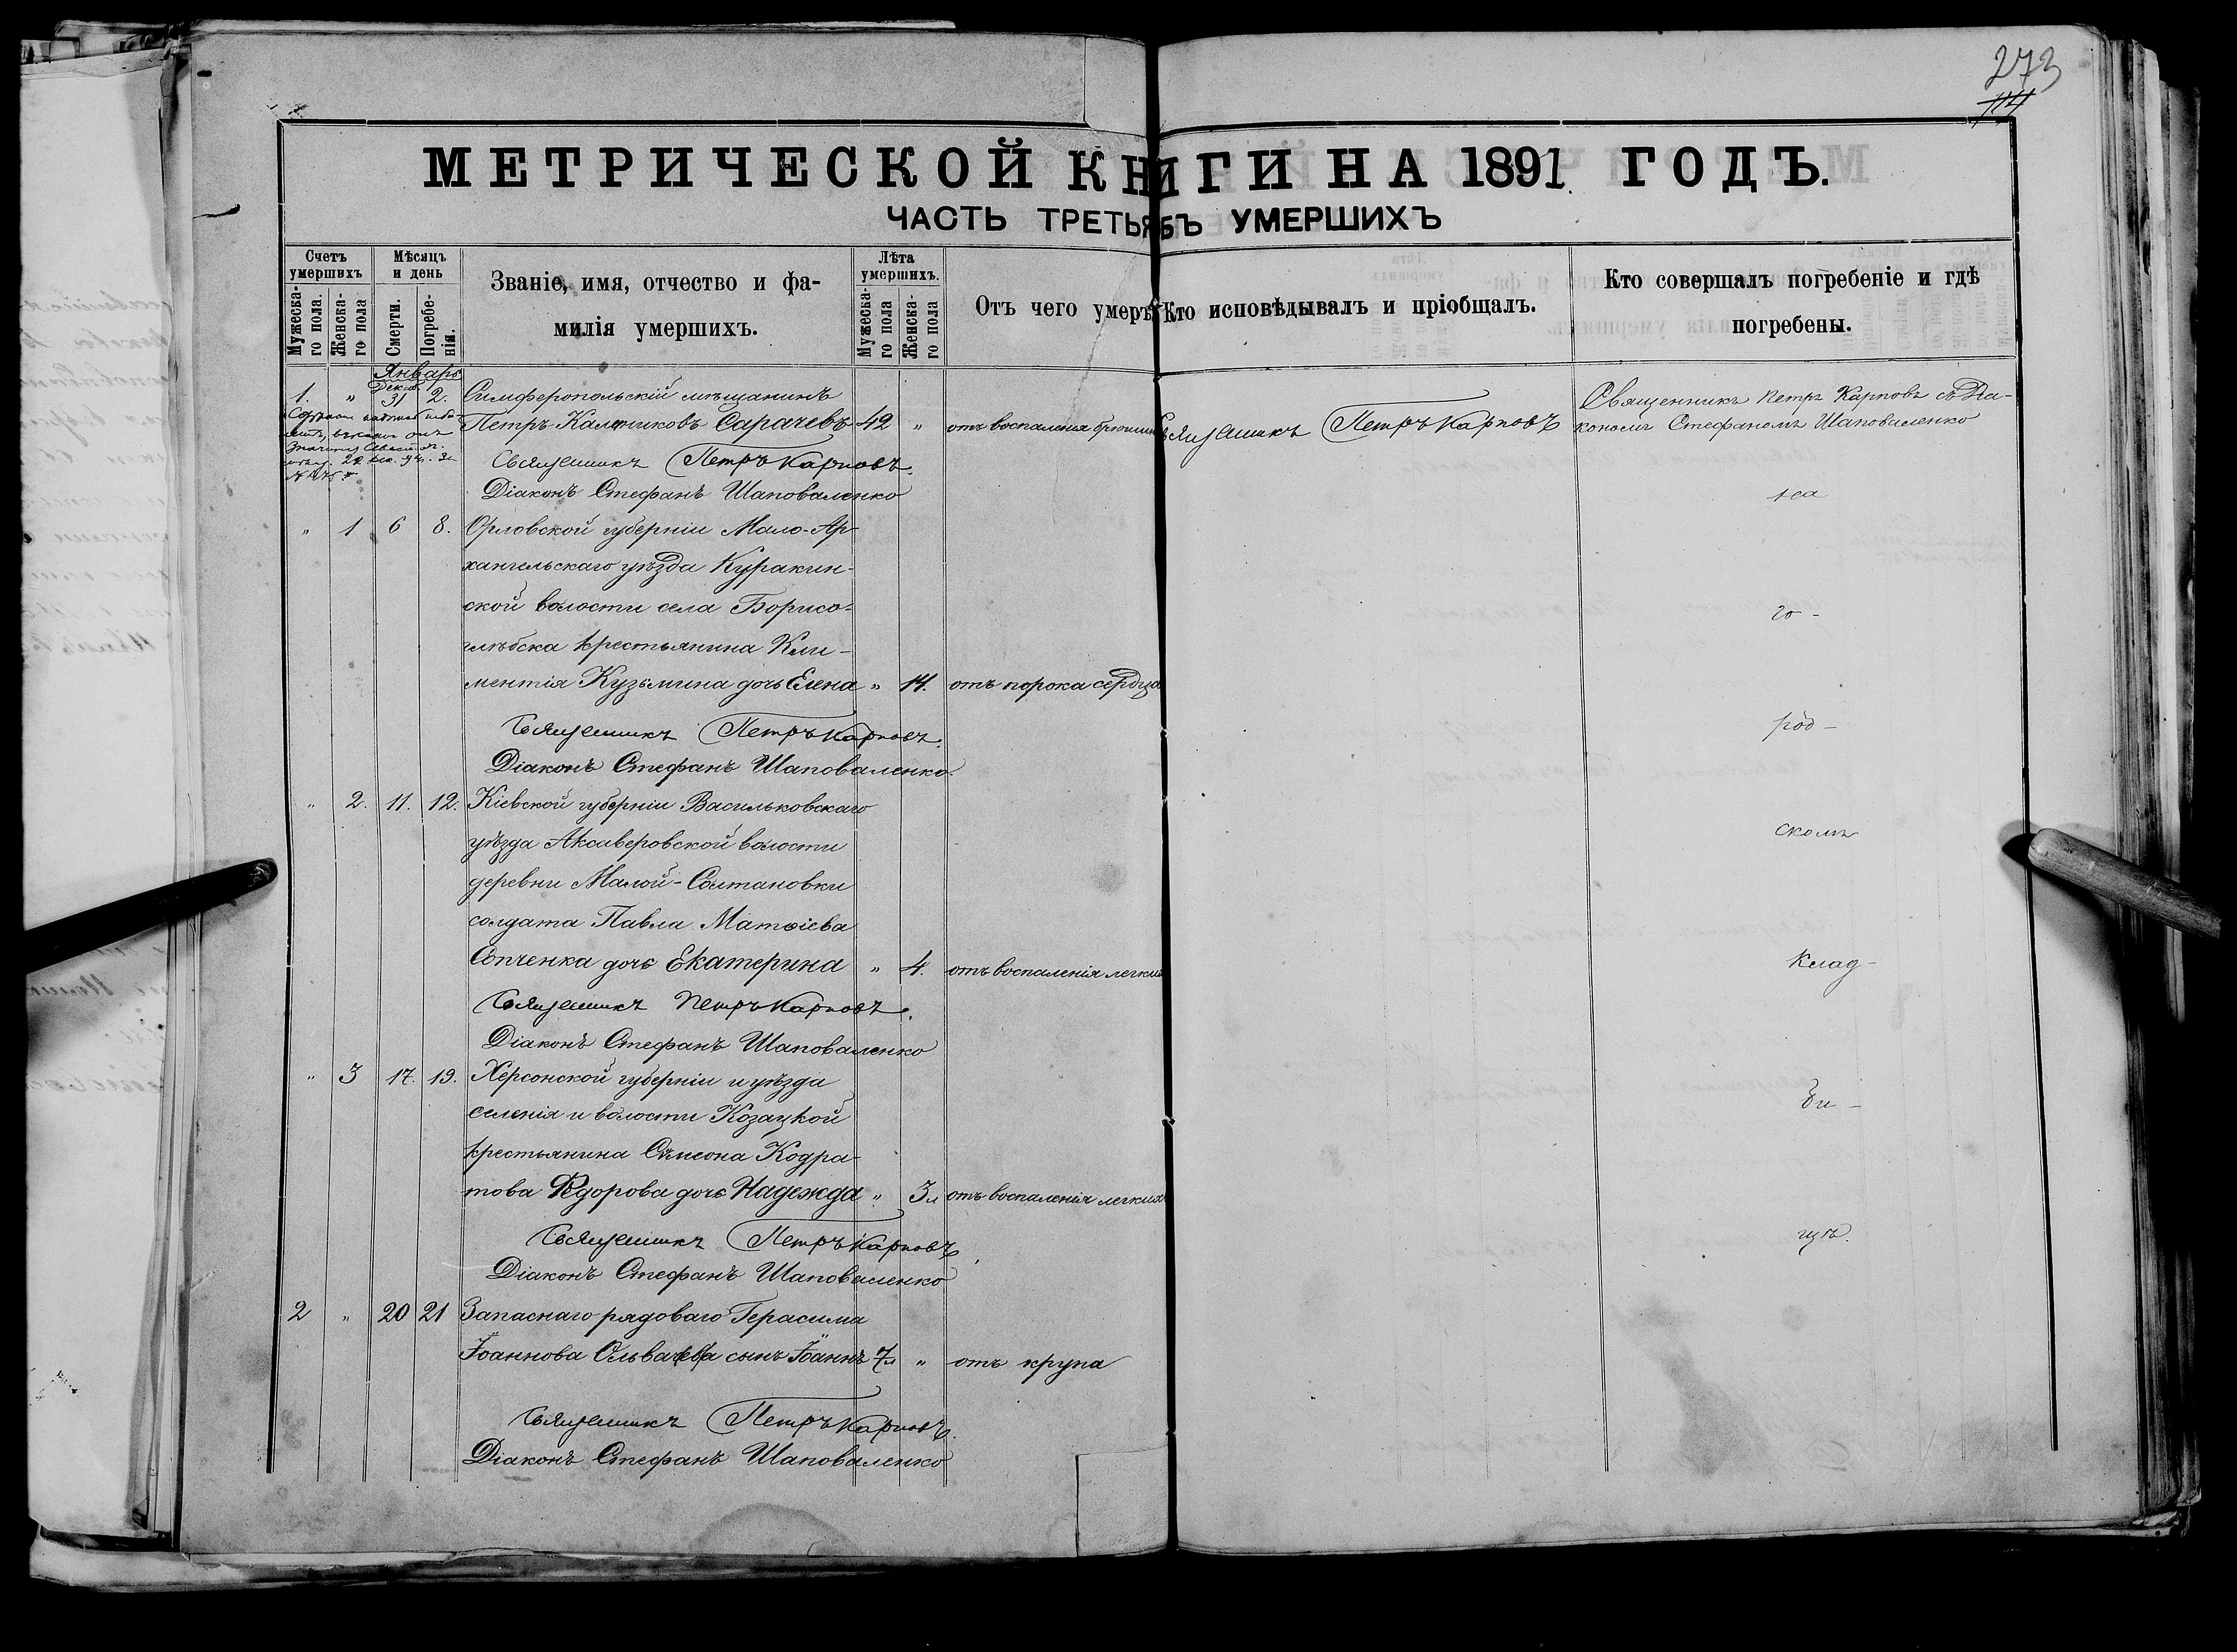 273
114
МЕТРИЧЕСКОЙ КНИГИ НА 1891 ГОДЪ.
ЧАСТЬ ТРЕТЬЯ УМЕРШИХЪ
Счетъ умершихъ
Мужеска-го пола.
Женска-го пола
Мѣсяцъ и день
Смерти.
Погребе-нія.
Званіе, имя, отчество и фа-
милія умершихъ.
Лѣта умершихъ.
Мужеска-го пола
Женска-го пола
Отъ чего умеръ
Кто исповѣдывалъ и пріобщалъ.
Кто совершалъ погребеніе и гдѣ
погребены.
Январь
Декаб.
1. " 31 2. Симферопольскій мѣщанинъ
Петръ Калинниковъ Сарачевъ 42 " отъ воспаленія брюшины
Священникъ Петръ Карповъ
Священникъ Петръ Карповъ съ Діа-
кономъ Стефаномъ Шаповаленко
Священникъ Петръ Карповъ.
Діаконъ Стефанъ Шаповаленко
на
" 1 6 8. Орловской губерніи Мало-Ар-
хангельскаго уѣзда Куракин-
ской волости села Борисо-
го-
глѣбска крестьянина Кли-
ментія Кузьмина дочь Елена " 14. отъ порока сердца
Священникъ Петръ Карповъ.
род-
Діаконъ Стефанъ Шаповаленко.
" 2. 11. 12. Кіевской губерніи Васильковскаго
уѣзда Аксаверовской волости
скомъ
деревни Малой-Солтановки
солдата Павла Матѳіева
Сопченка дочь Екатерина " 4. отъ воспаленія легкихъ
клад-
Священникъ Петръ Карповъ.
Діаконъ Стефанъ Шаповаленко
" 3 17. 19. Херсонской губерніи и уѣзда
селенія и волости Козацкой
би-
крестьянина Сѵмеона Кодра-
това Ѳедорова дочь Надежда " 3л отъ воспаленія легкихъ
Священникъ Петръ Карповъ
щѣ.
Діаконъ Стефанъ Шаповаленко
2 " 20 21 Запаснаго рядоваго Герасима
Іоаннова Ольвачева сынъ Іоаннъ 7л " отъ крупа
Священникъ Петръ Карповъ.
Діаконъ Стефанъ Шаповаленко